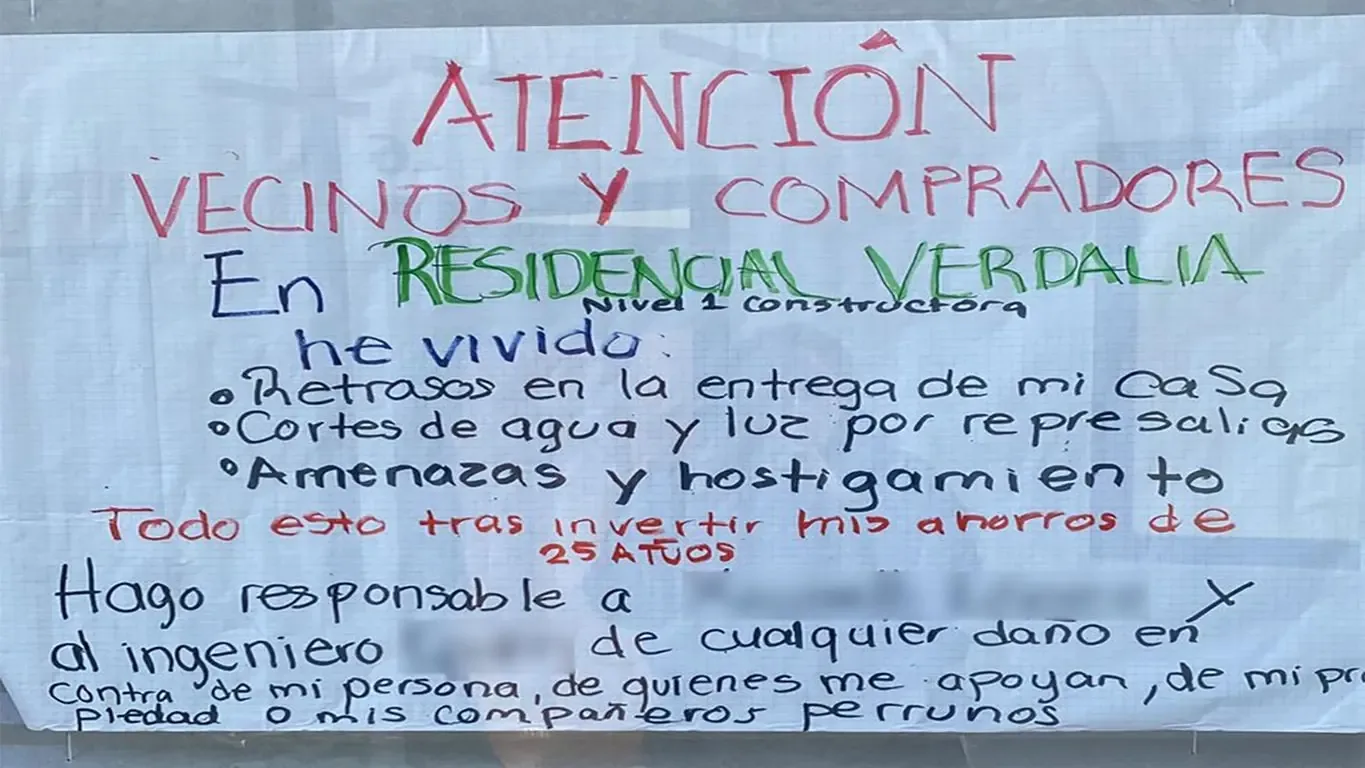 ATENCIÓN
VECINOS Y COMPRADORES
En RESIDENCIAL VERDALIA
Nivel 1 Constructora
he vivido:
• Retrasos en la entrega de mi casa
• Cortes de agua y luz por represalias
• Amenazas y hostigamiento
Todo esto tras invertir mis ahorros de
25 AÑOS
Hago responsable a y
al ingeniero de cualquier daño en
contra de mi persona, de quienes me apoyan, de mi pro
piedad o mis compañeros perrunos